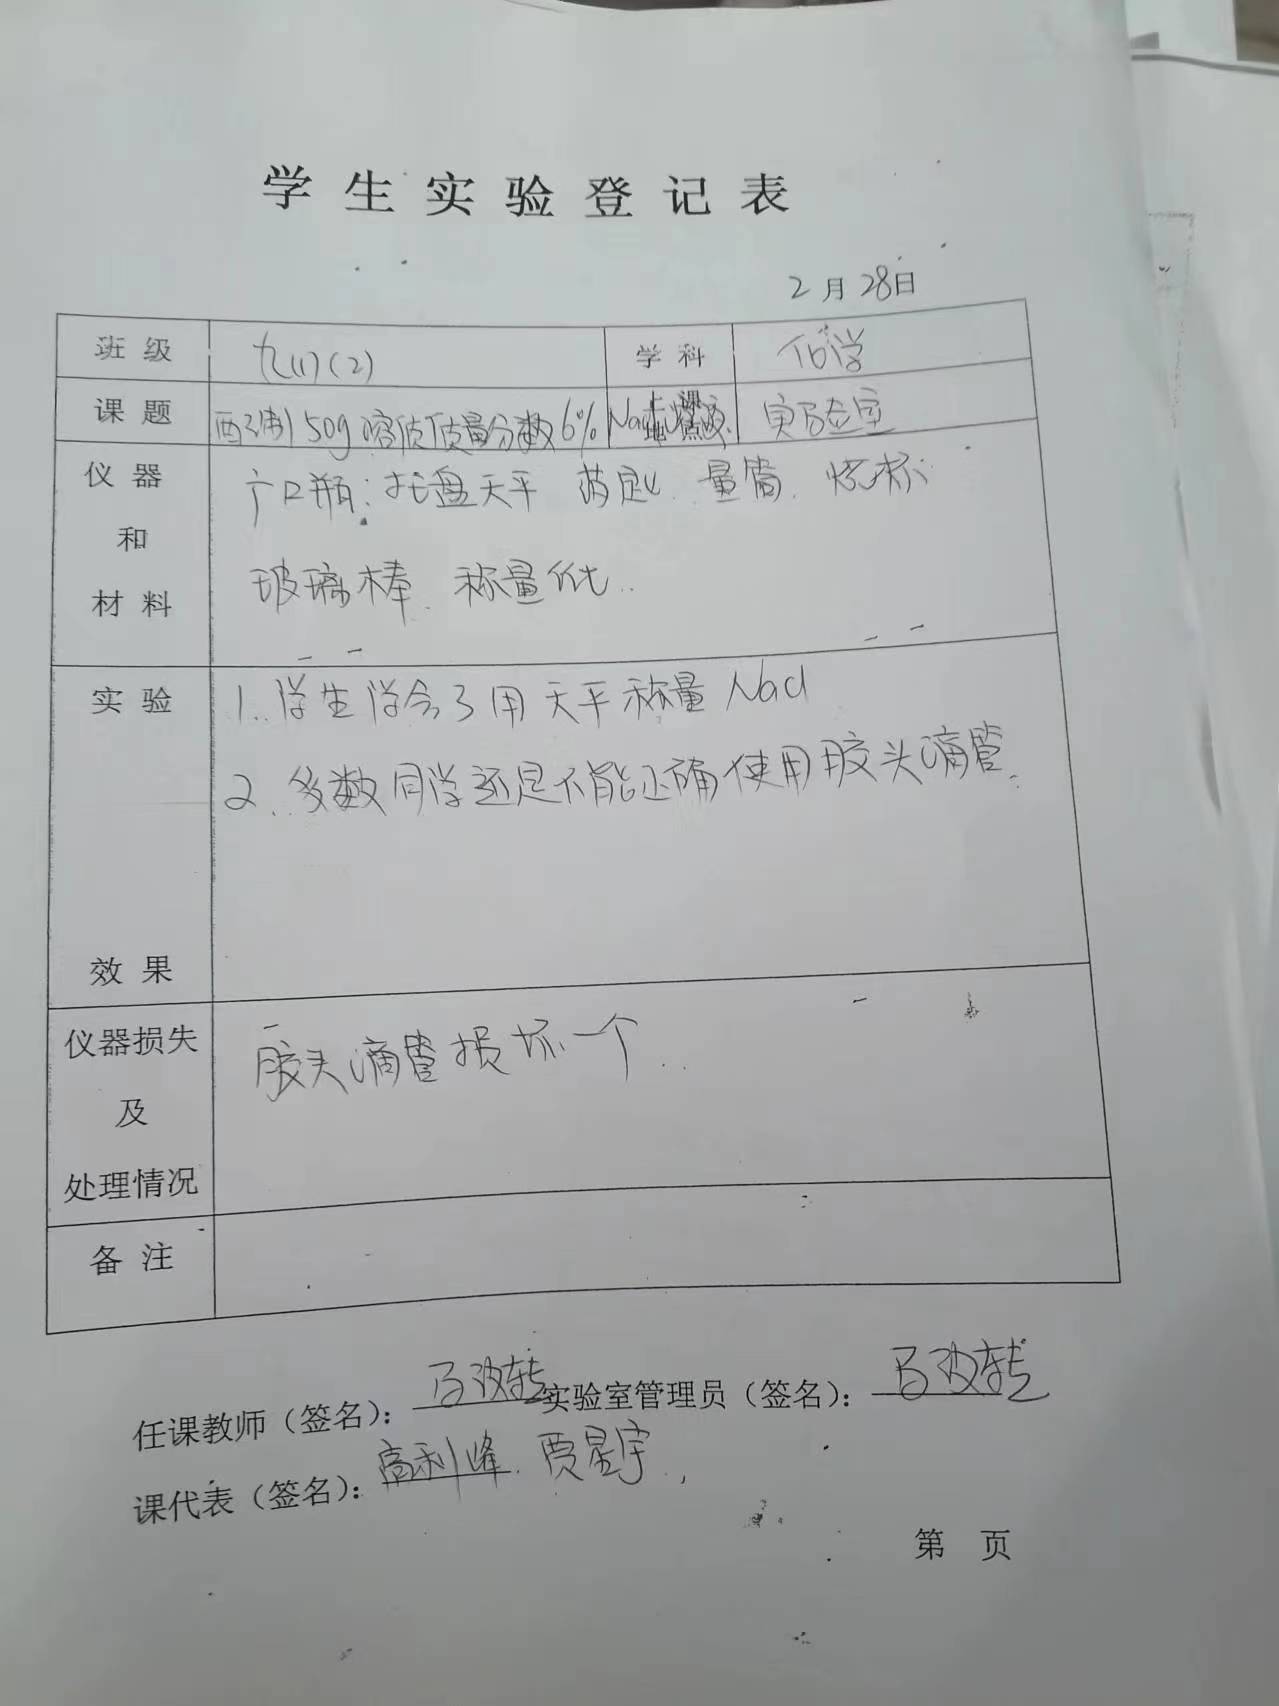 学生实验登记表
2月28日
班级 九(1)(2) 学科 化学
课题 配制50g溶质质量分数6% NaCl溶液 上课地点 实验室
仪器 广口瓶: 托盘天平 药匙. 量筒. 烧杯.
和
材料 玻璃棒. 称量纸..
实验 1. 学生学会了用天平称量NaCl
2. 多数同学还是不能正确使用胶头滴管.
效果
仪器损失 胶头滴管损坏一个.
及
处理情况
备注
任课教师（签名）： 马改转 实验室管理员（签名）： 马改转
课代表（签名）： 高利峰. 贾星宇.
第 页